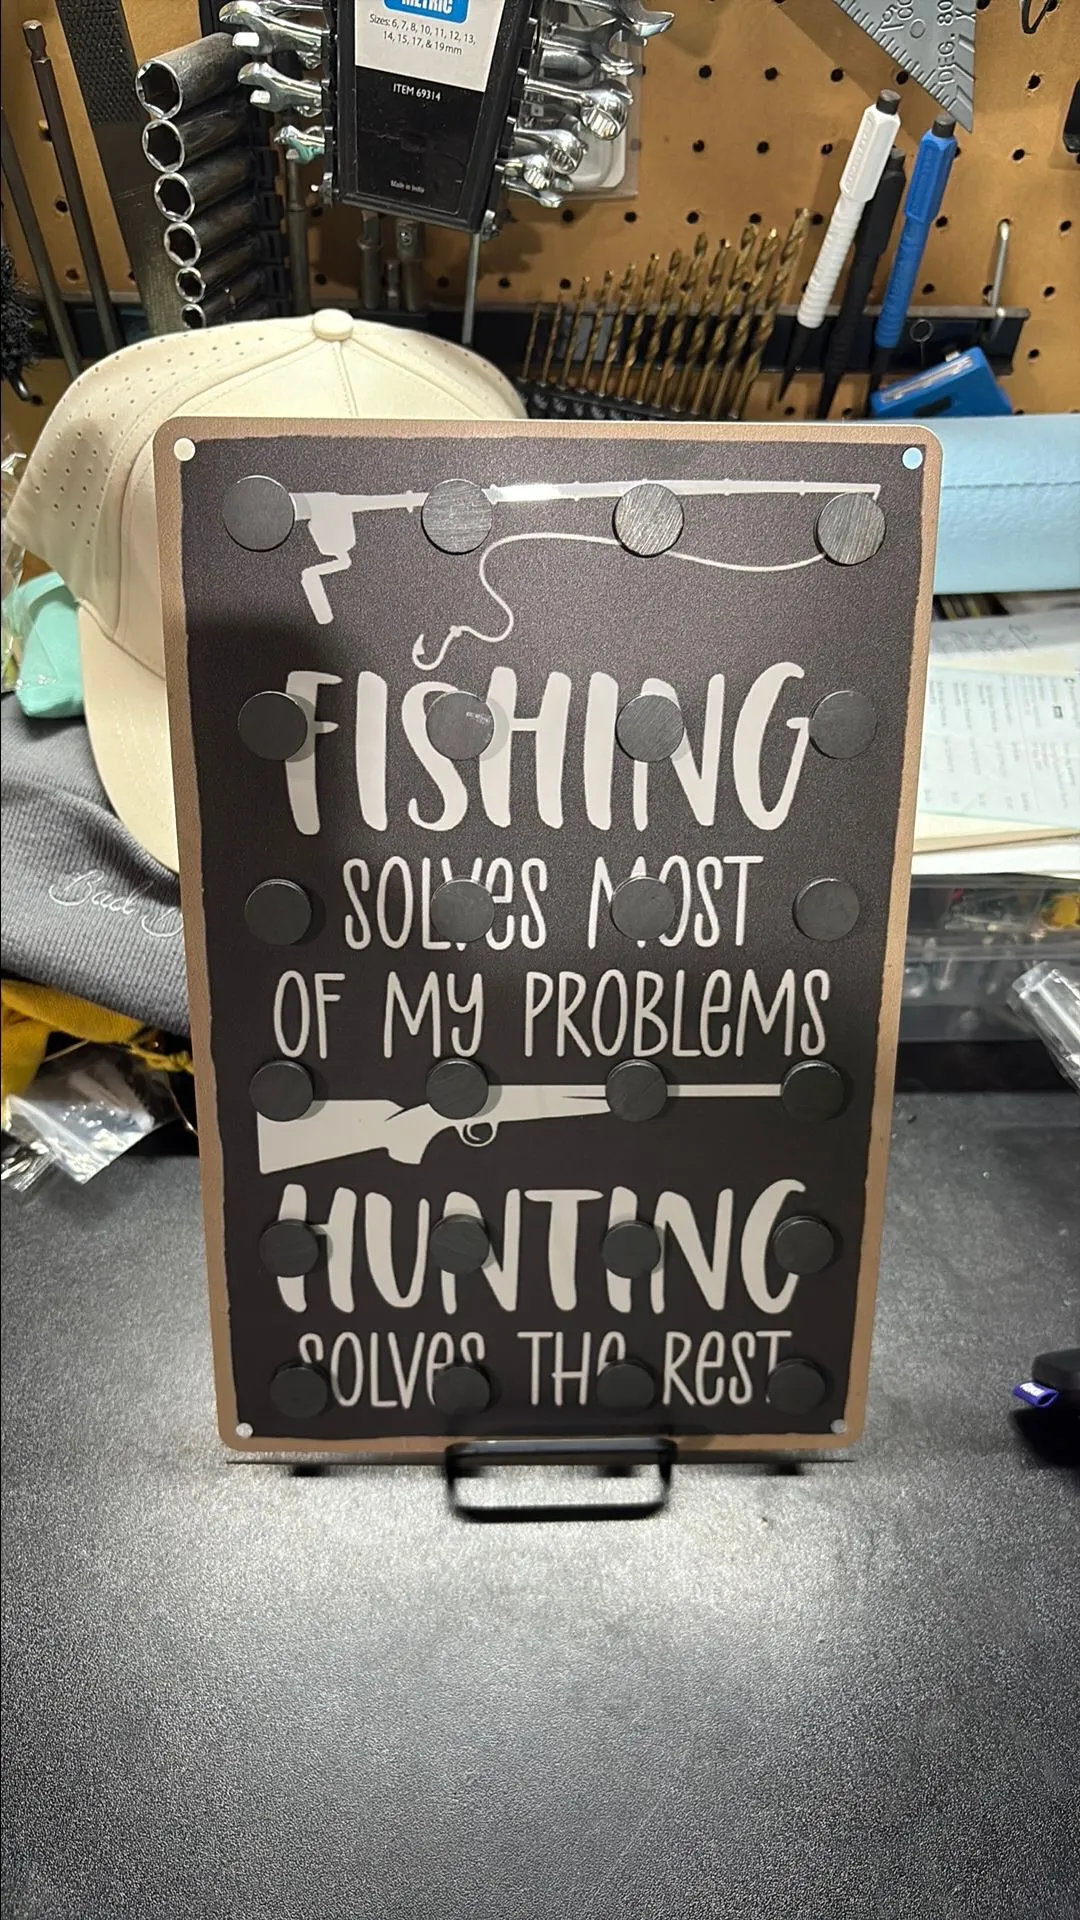 METRIC
Sizes: 6, 7, 8, 10, 11, 12, 13,
14, 15, 17, & 19mm
ITEM 69314
Made in India
DEG. 80
FISHING
SOLVES MOST
OF MY PROBLEMS
HUNTING
SOLVES THE REST
Bad